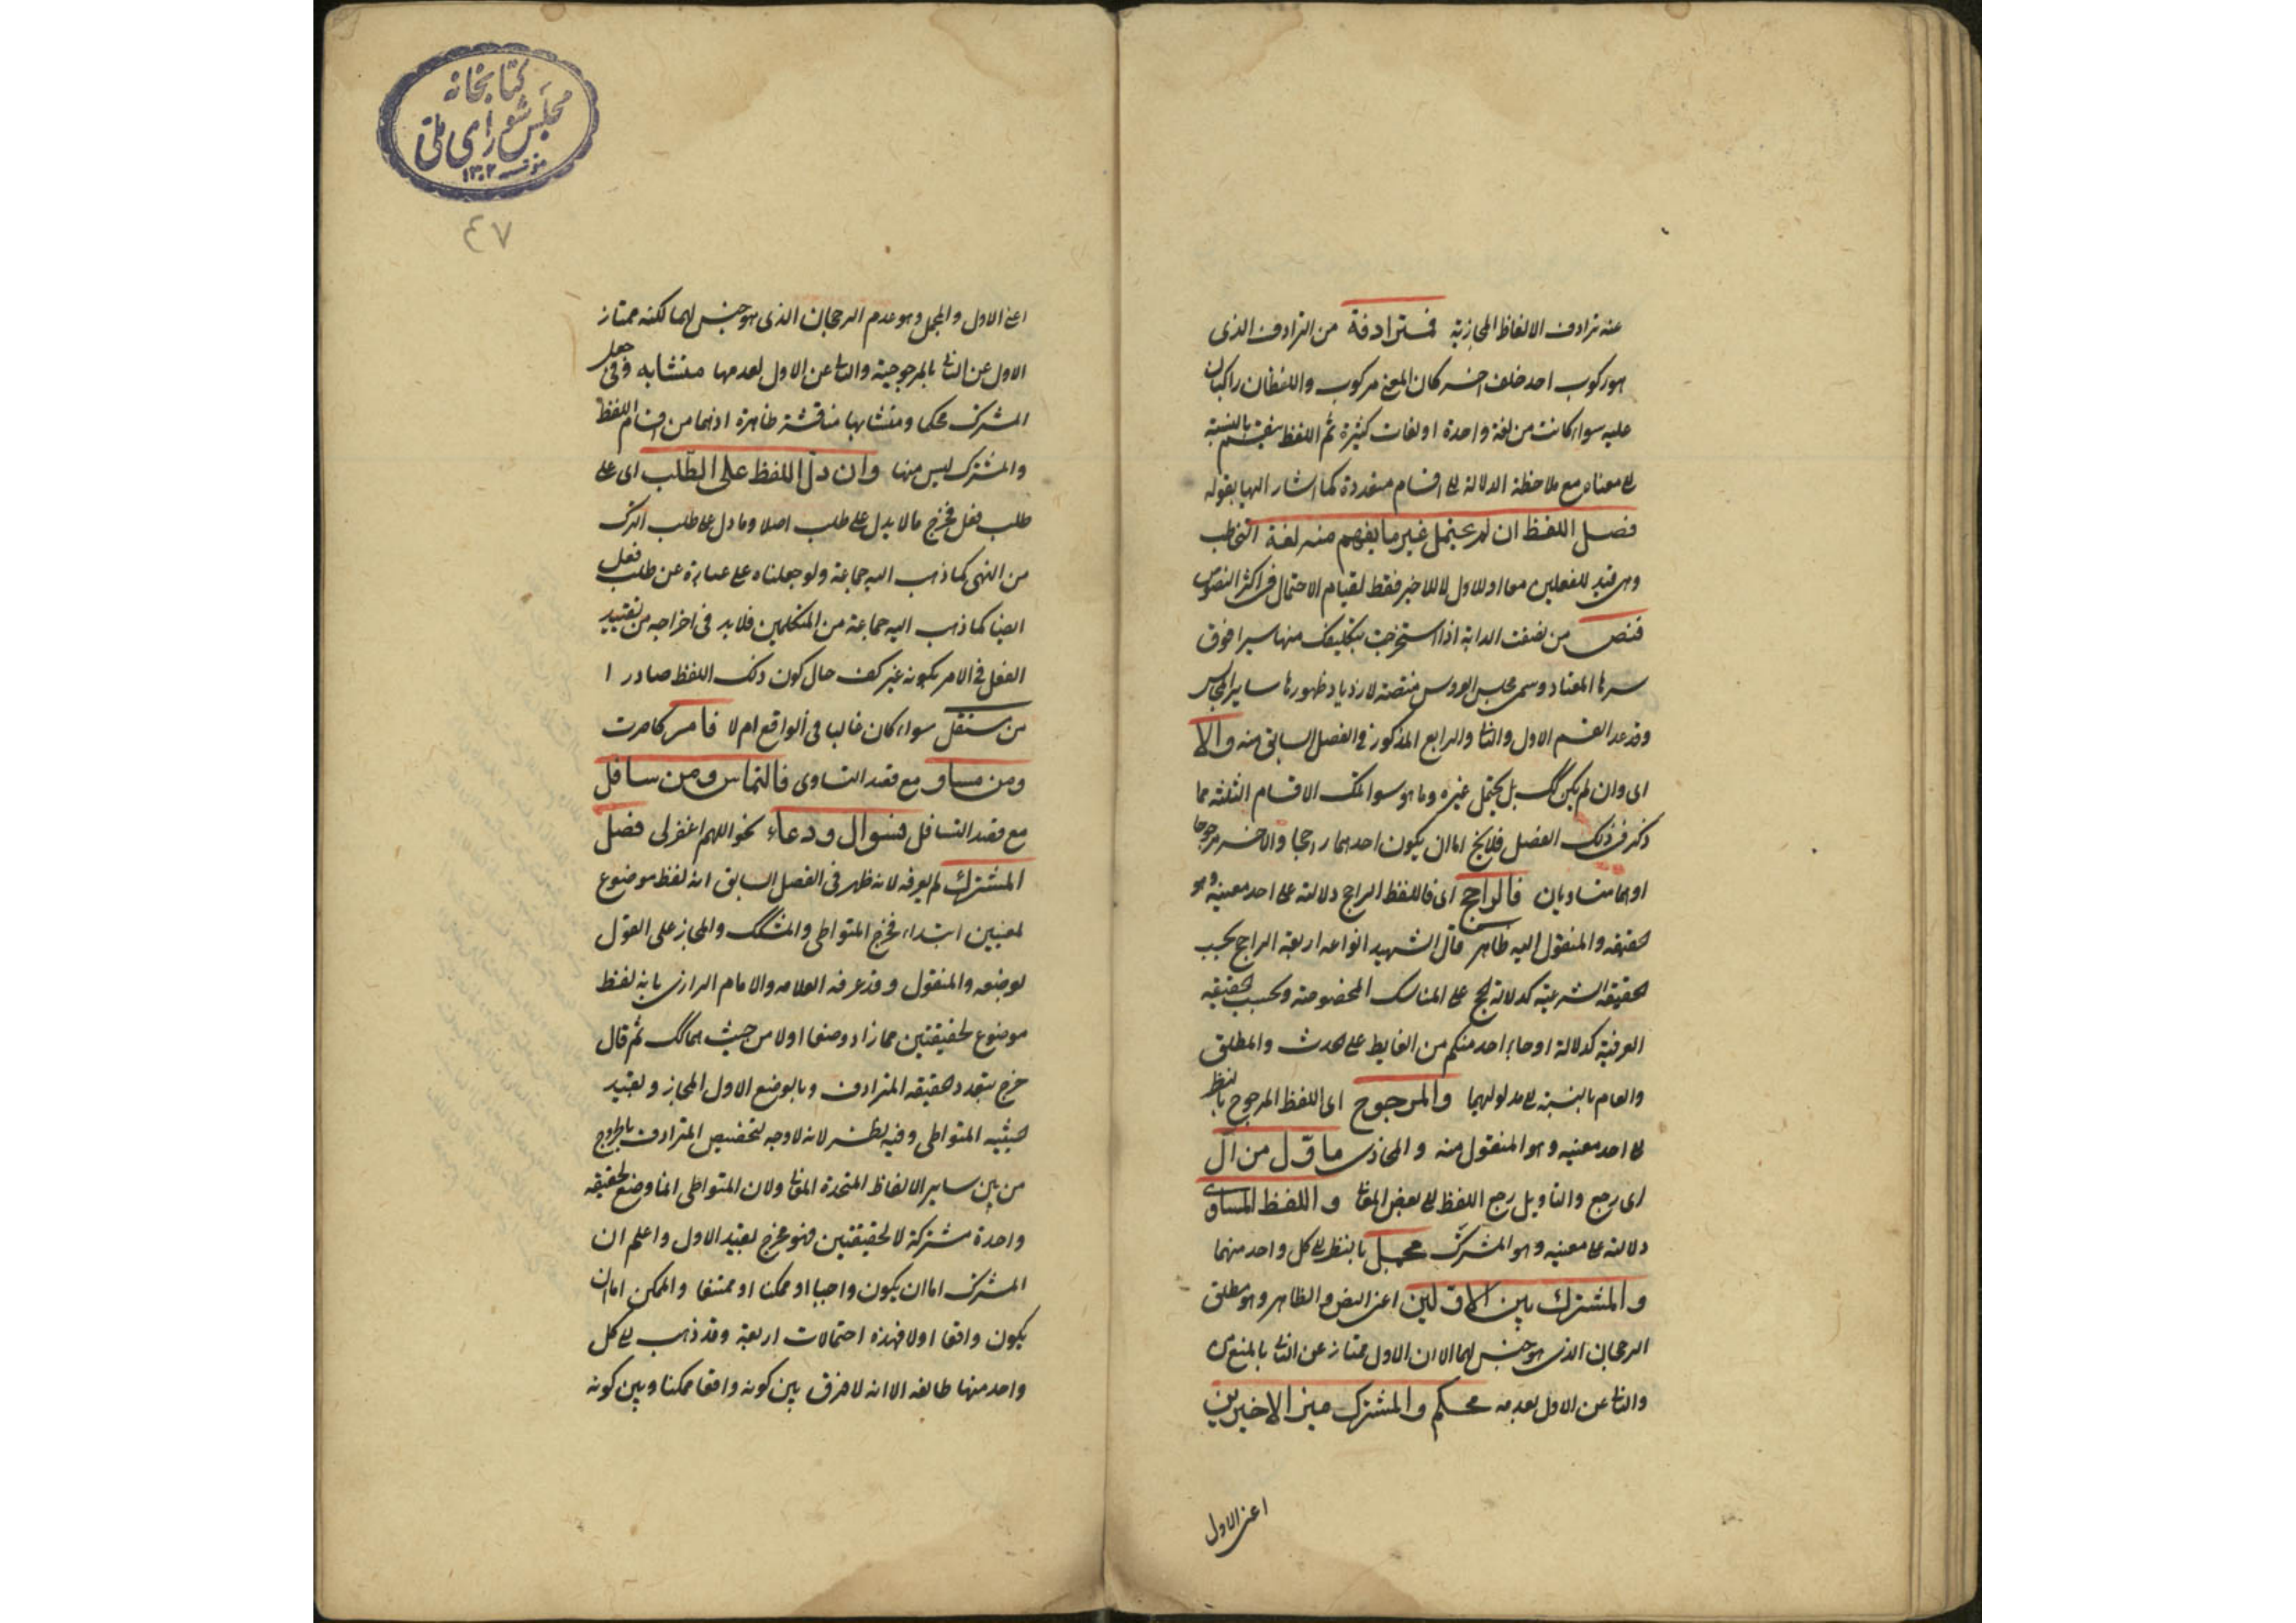 عنه ترادف الالفاظ المجازية فمترادفة من الترادف الذى
هو ركوب احد خلف اخر كان المعنى مركوب واللفظان راكبان
عليه سواء كانت من لغة واحدة او لغات كثيرة ثم اللفظ ينقسم بالنسبة
الى معناه مع ملاحظة الدلالة الى اقسام متعددة كما اشار اليها بقوله
فصل اللفظ ان لم يحتمل غير ما يفهم منه لغة التخاطب
وهى قيد للفعلين معا او للاول لا للاخير فقط لقيام الاحتمال فى اكثر النصوص
فنص من نصصت الدابة اذا استخرجت بتكليف منها سيرا فوق
سيرها المعتاد وسمى مجلس العروس منصة لازدياد ظهورها سائر المجالس
وقد عد القسم الاول والثالث والرابع المذكور فى الفصل السابق منه والا
اى وان لم يكن كك بل يحتمل غيره وما هو سوا تلك الاقسام الثلثة مما
ذكر فى ذلك الفصل فلا يخ اما ان يكون احدهما راجحا والاخر مرجوحا
او هما متساويان فالراجح اى فاللفظ الراجح دلالته على احد معنييه وهو
الحقيقة والمنقول اليه ظاهر قال الشهيد انواعه اربعة الراجح بحسب
الحقيقة الشرعية كدلالة الحج على المناسك المخصوصة وبحسب الحقيقة
العرفية كدلالة او جاء احد منكم من الغايط على الحدث والمطلق
والعام بالنسبة الى مدلوليهما والمرجوح اى اللفظ المرجوح بالنظر
الى احد معنييه وهو المنقول منه والمجازى ماوّل من آل
اى رجع والتاويل رجع اللفظ الى بعض المعانى واللفظ المساوى
دلالته على معنييه وهو المشترك مجمل بالنظر الى كل واحد منهما
والمشترك بين الاولين اعنى النص والظاهر وهو مطلق
الرجحان الذى هو جنس لهما الا ان الاول ممتاز عن الثانى بالمنع
والثانى عن الاول بعدمه محكم والمشترك بين الاخيرين
اعنى الاول
كتابخانه
مجلس شوراى ملى
مؤسسه ١٣٠٢
٤٧
اعنى الاول والمجمل وهو عدم الرجحان الذى هو جنس لهما لكنه ممتاز
الاول عن الثانى بالمرجوحية والثانى عن الاول بعدمها متشابه وفى جعل
المشترك محكما ومتشابها مناقشة ظاهرة اذ هما من اقسام اللفظ
والمشترك ليس منها وان دلّ اللفظ على الطلب اى على
طلب فعل فخرج ما لا يدل على طلب اصلا وما دل على طلب الترك
من النهى كما ذهب اليه جماعة ولو جعلناه على عبارة عن طلب فعل
ايضا كما ذهب اليه جماعة من المتكلمين فلابد فى اخراجه من تقييد
الفعل فى الامر بكونه غير كف حال كون ذلك اللفظ صادرا
من مستقل سواء كان غالبا فى الواقع ام لا فامر كامرت
ومن مساو مع قصد التساوى فالتماس ومن سافل
مع قصد التسافل فسوال ودعاء نحو اللهم اغفر لى فصل
المشترك لم يعرفه لانه ظهر فى الفصل السابق انه لفظ موضوع
لمعنيين ابتداء فخرج المتواطى والمشكك والمجاز على القول
بوضعه والمنقول وقد عرفه العلامه والامام الرازى بانه لفظ
موضوع لحقيقتين فمازاد وضعا اولا من حيث هما كك ثم قال
خرج بتعدد الحقيقه المترادف وبالوضع الاول المجاز وبقيد
الحيثيه المتواطى وفيه نظر لانه لا وجه لتخصيص المترادف بالخروج
من بين ساير الالفاظ المتحدة المعانى ولان المتواطى انما وضع لحقيقه
واحدة مشتركة لا لحقيقتين فهو خرج بقيد الاول واعلم ان
المشترك اما ان يكون واجبا او ممكنا او ممتنعا والممكن اما ان
يكون واقعا اولا فهذه احتمالات اربعة وقد ذهب الى كل
واحد منها طائفه الا انه لا فرق بين كونه واقعا ممكنا وبين كونه